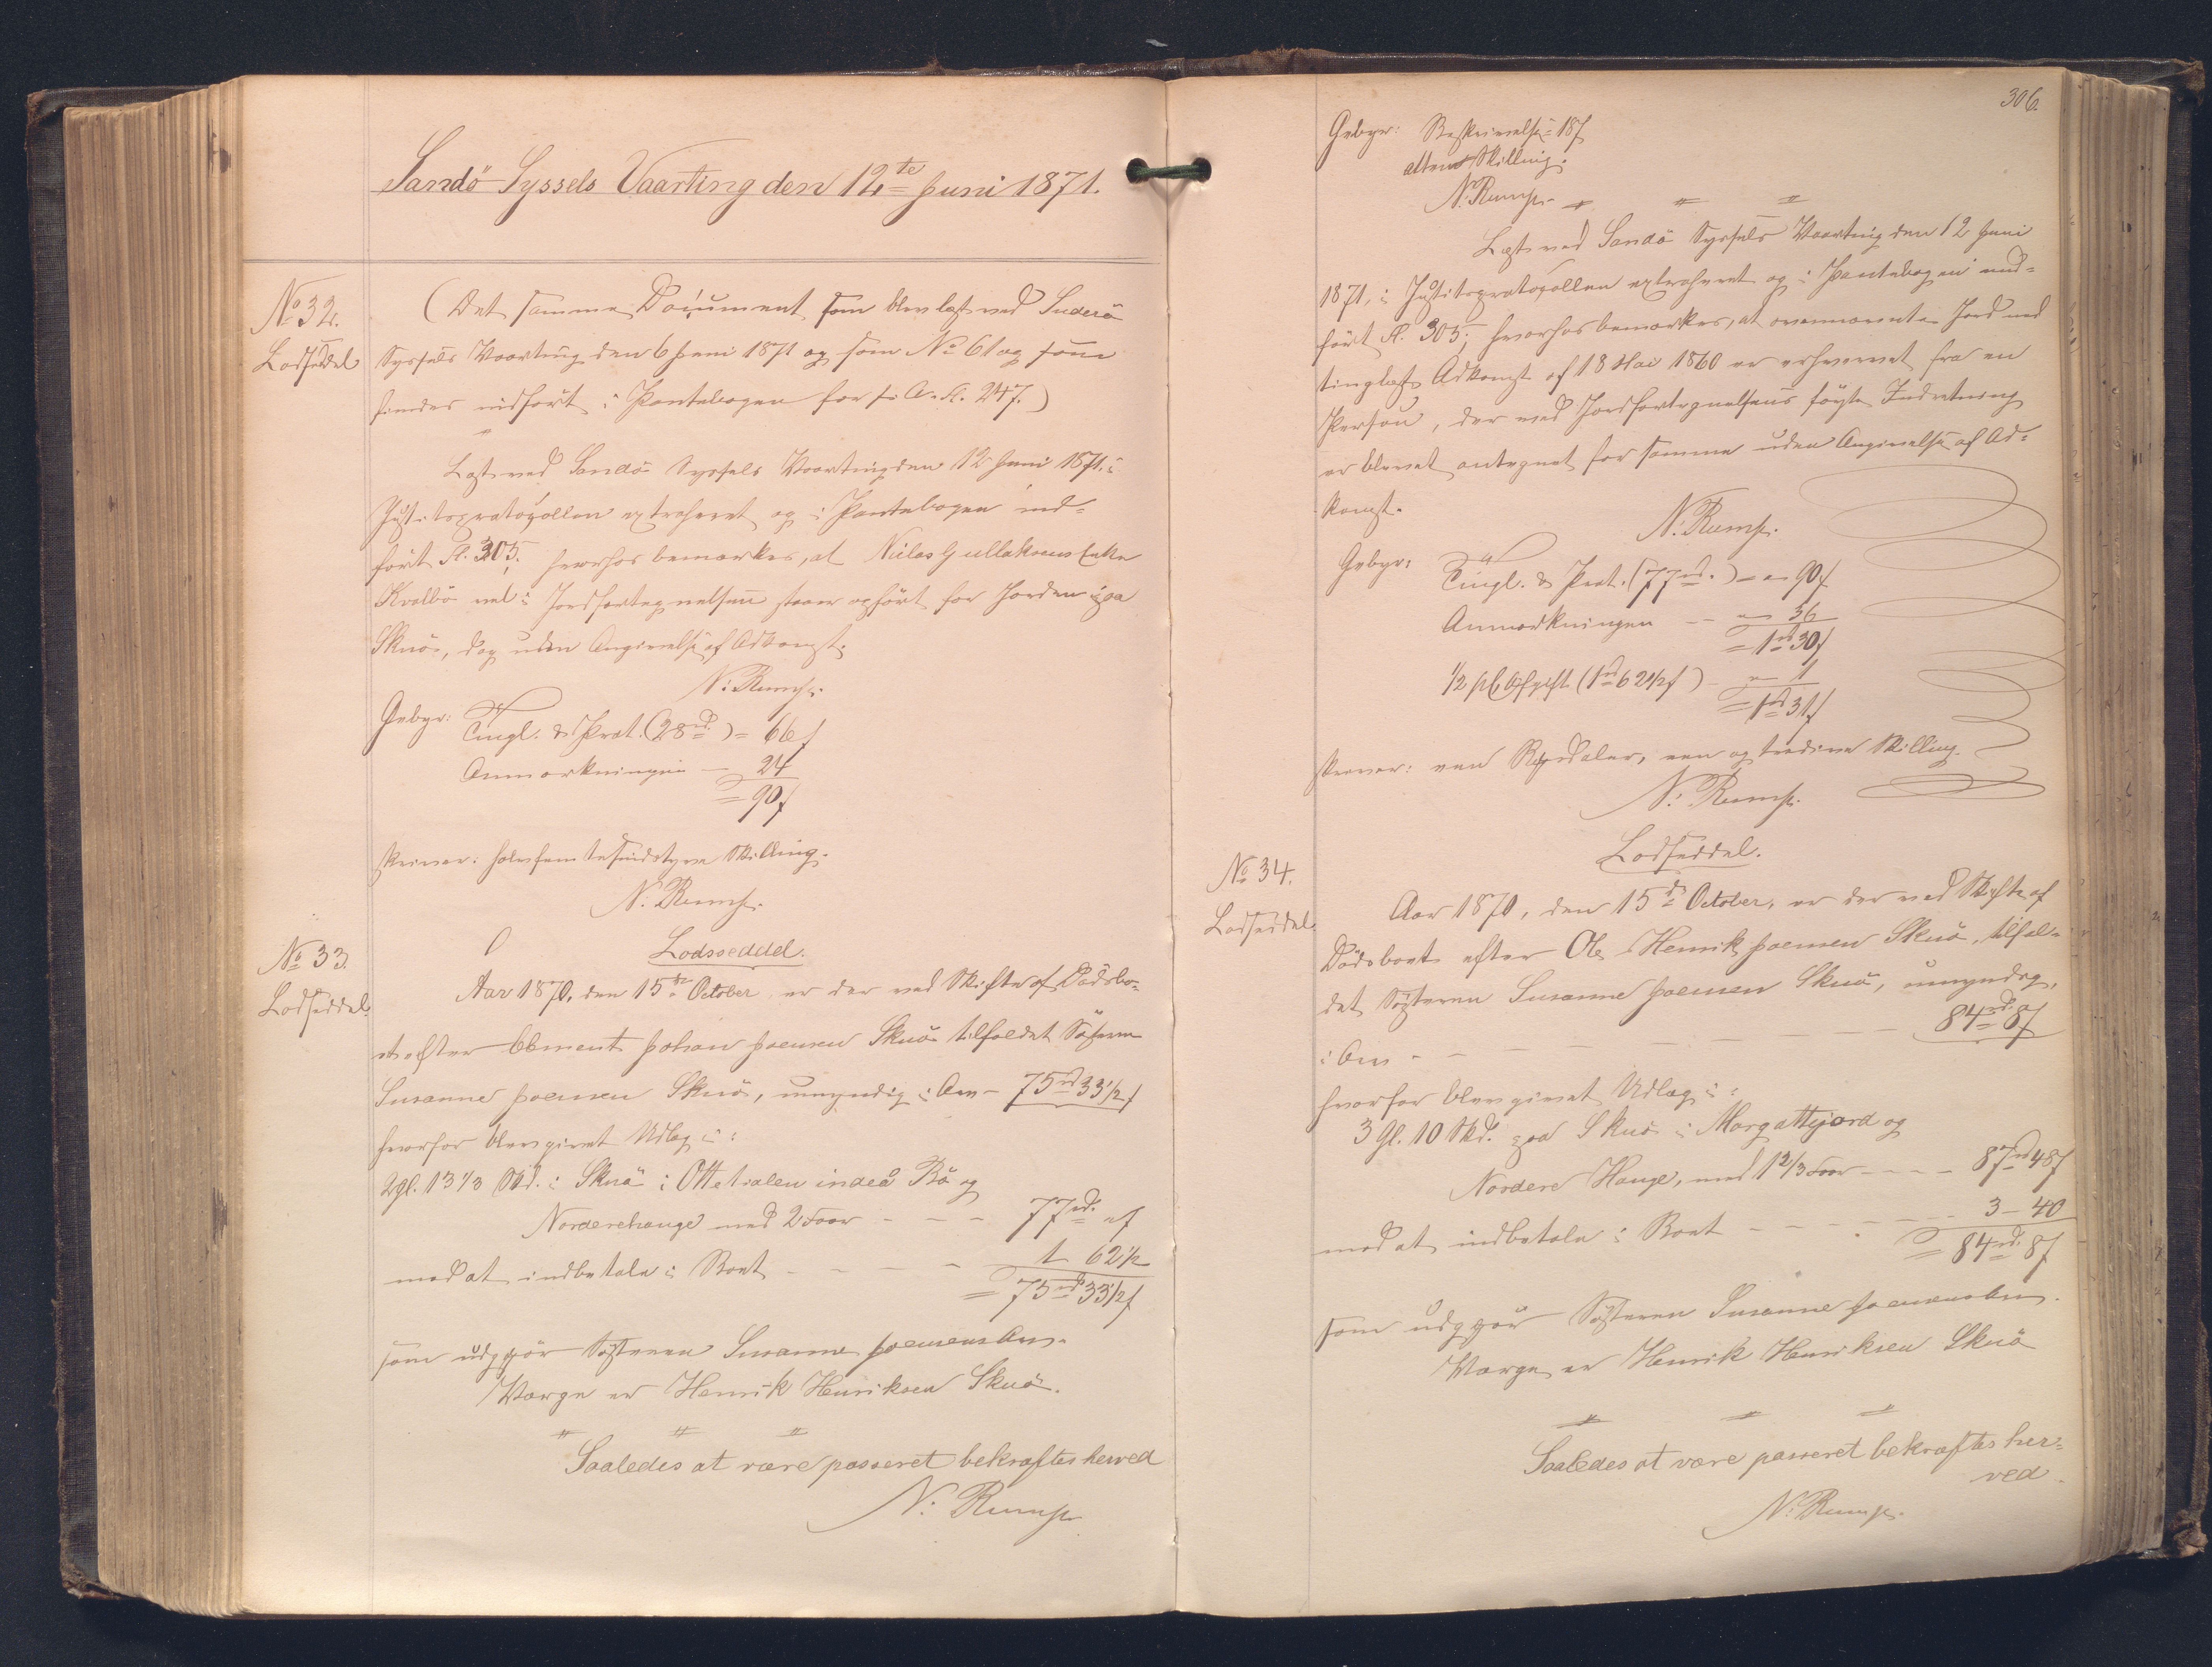 Sandö Syssels Vaarting den 12te Juni 1871.
No 32.
Lodseddel
(Det samme Document som blev læst ved Suderö
Syssels Vaarting den 6 Juni 1871 og som No 61 og som
findes indført i Pantebogen for s. A. Fl. 247.)
Læst ved Sandö Syssels Vaarting den 12 Juni 1871. i
Justitsprotocollen extraheret og i Pantebogen ind-
ført Fl. 305; hvorhos bemærkes, at Niclas Gullaksens Enke
Kvalbö vel i Jordfortegnelsen staaer opført for Jorden paa
Skuö, dog uden Angivelse af Adkomst.
N. Rump.
Gebyr: Tingl. & Prot. (28 rd.) = 66 s
Anmærkningen — 24
= 90 s
skriver: halvfemtesindstyve Skilling.
N. Rump.
No 33.
Lodseddel.
Lodsseddel.
Aar 1870, den 15de October er der ved Skifte af Dödsbo-
et efter Clement Johan Joensen Skuö tilfaldet Søsteren
Susanne Joensen Skuö, umyndig i Arv - 75 rd 33 1/2 s
hvorfor blev givet Udlæg i:
2 gl. 13 1/3 Skd. i Skuö i Ottetialen inder Bö og
Norderehauge med 2 Foer - - - 77 rd. " s
mod at indbetale i Boet - - - - 1 62 1/2
= 75 rd 33 1/2 s
som udgjør Søsteren Susanne Joensens Arv.
Værge er Henrik Henriksen Skuö.
Saaledes at være passeret bekræftes herved
N. Rump
306.
Gebyr: Beskrivelse = 18 s
atten Skilling.
N. Rump.
Læst ved Sandö Syssels Vaarting den 12 Juni
1871, i Justitsprotocollen extraheret og i Pantebogen ind-
ført Fl. 305; hvorhos bemærkes, at ovennævnte Jord ved
tinglæst Adkomst af 18 Mai 1860 er erhvervet fra en
Person, der ved Jordfortegnelsens første Indretning
er blevet antegnet for samme uden Angivelse af Ad-
komst.
N. Rump.
Gebyr: Tingl. & Prot. (77 rd.) - " 90 s
Anmærkningen - - " 36
= 1 rd 30 s
1/2 pC Afgift (1 rd 62 1/2 s) - " 1
= 1 rd 31 s
skriver: een Rigsdaler, een og tredive Skilling.
N. Rump.
No 34.
Lodseddel.
Lodseddel.
Aar 1870, den 15de October, er der ved Skifte af
Dödsboet efter Ole Henrik Joensen Skuö, tilfal-
det Søsteren Susanne Joensen Skuö, umyndig,
i Arv - - - - - 84 rd. 8 s
hvorfor blev givet Udlæg i:
3 Gl. 10 Skd. paa Skuö i Morgattejord og
Nordere Hauge, med 1 2/3 Foer - - - - 87 rd 48 s
mod at indbetale i Boet - - - - - 3 - 40
= 84 rd. 8 s
som udgjør Søsteren Susanne Joensens Arv.
Værge er Henrik Henriksen Skuö
Saaledes at være passeret bekræftes her-
ved.
N. Rump.